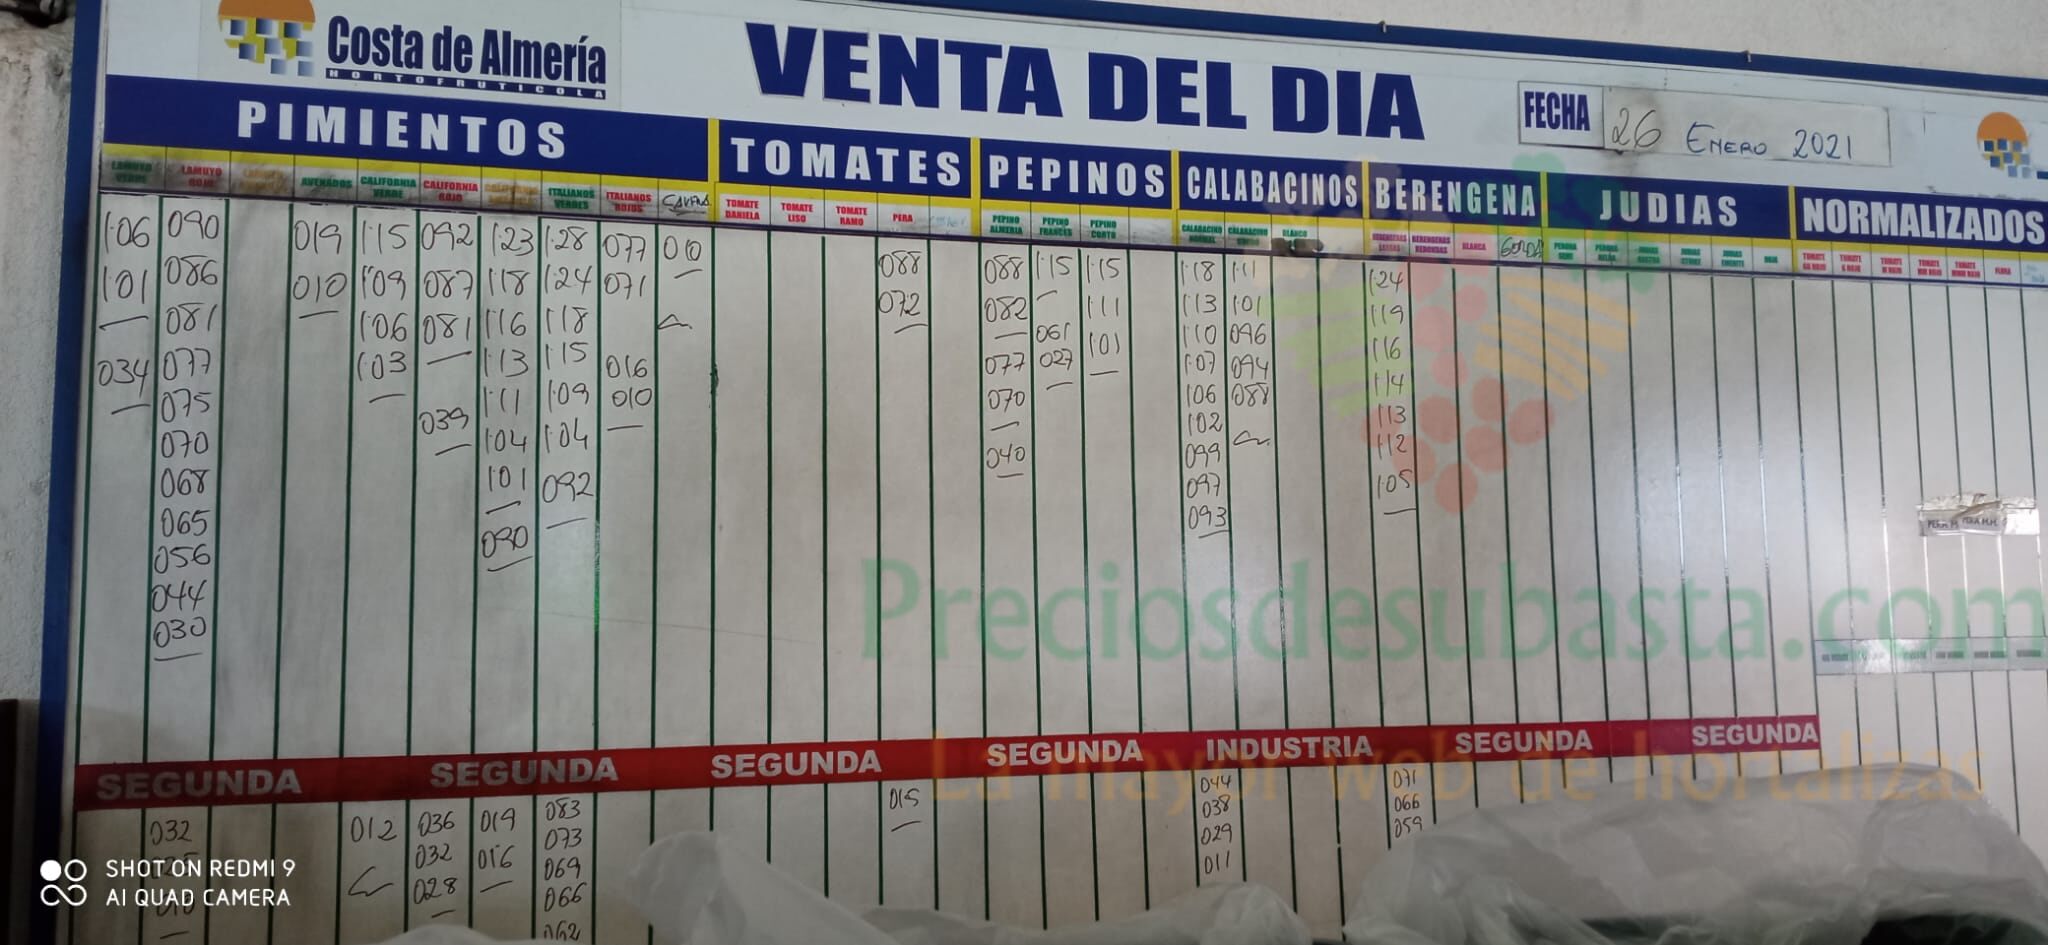 Costa de Almería
HORTOFRUTICOLA
VENTA DEL DIA
FECHA 26 ENERO 2021
PIMIENTOS TOMATES PEPINOS CALABACINOS BERENGENA JUDIAS NORMALIZADOS
LAMUYO VERDE
LAMUYO ROJO
AVENADOS
CALIFORNIA VERDE
CALIFORNIA ROJO
ITALIANOS VERDES
ITALIANOS ROJOS
TOMATE DANIELA
TOMATE LISO
TOMATE RAMO
PERA
PEPINO ALMERIA
PEPINO FRANCES
PEPINO CORTO
CALABACINO
BLANCO
BLANCA
GORDA
1.06 090 019 1.15 092 1.23 1.28 077 010 088 088 1.15 1.15 1.18 1.11 1.24
1.01 086 010 1.09 087 1.18 1.24 071 072 082 061 1.11 1.13 1.01 1.19
034 081 1.06 081 1.16 1.18 016 077 027 1.01 1.10 096 1.16
077 1.03 039 1.13 1.15 010 070 1.07 094 1.14
075 1.11 1.09 040 1.06 088 1.13
070 1.04 1.04 1.02 1.12
068 1.01 092 099 1.05
065 090 097
056 093
044
030
SEGUNDA SEGUNDA SEGUNDA SEGUNDA INDUSTRIA SEGUNDA SEGUNDA
032 012 036 019 083 015 044 071
032 016 073 038 066
028 069 029 059
066 011
062
Preciosdesubasta.com
La mayor web de hortalizas
SHOT ON REDMI 9
AI QUAD CAMERA